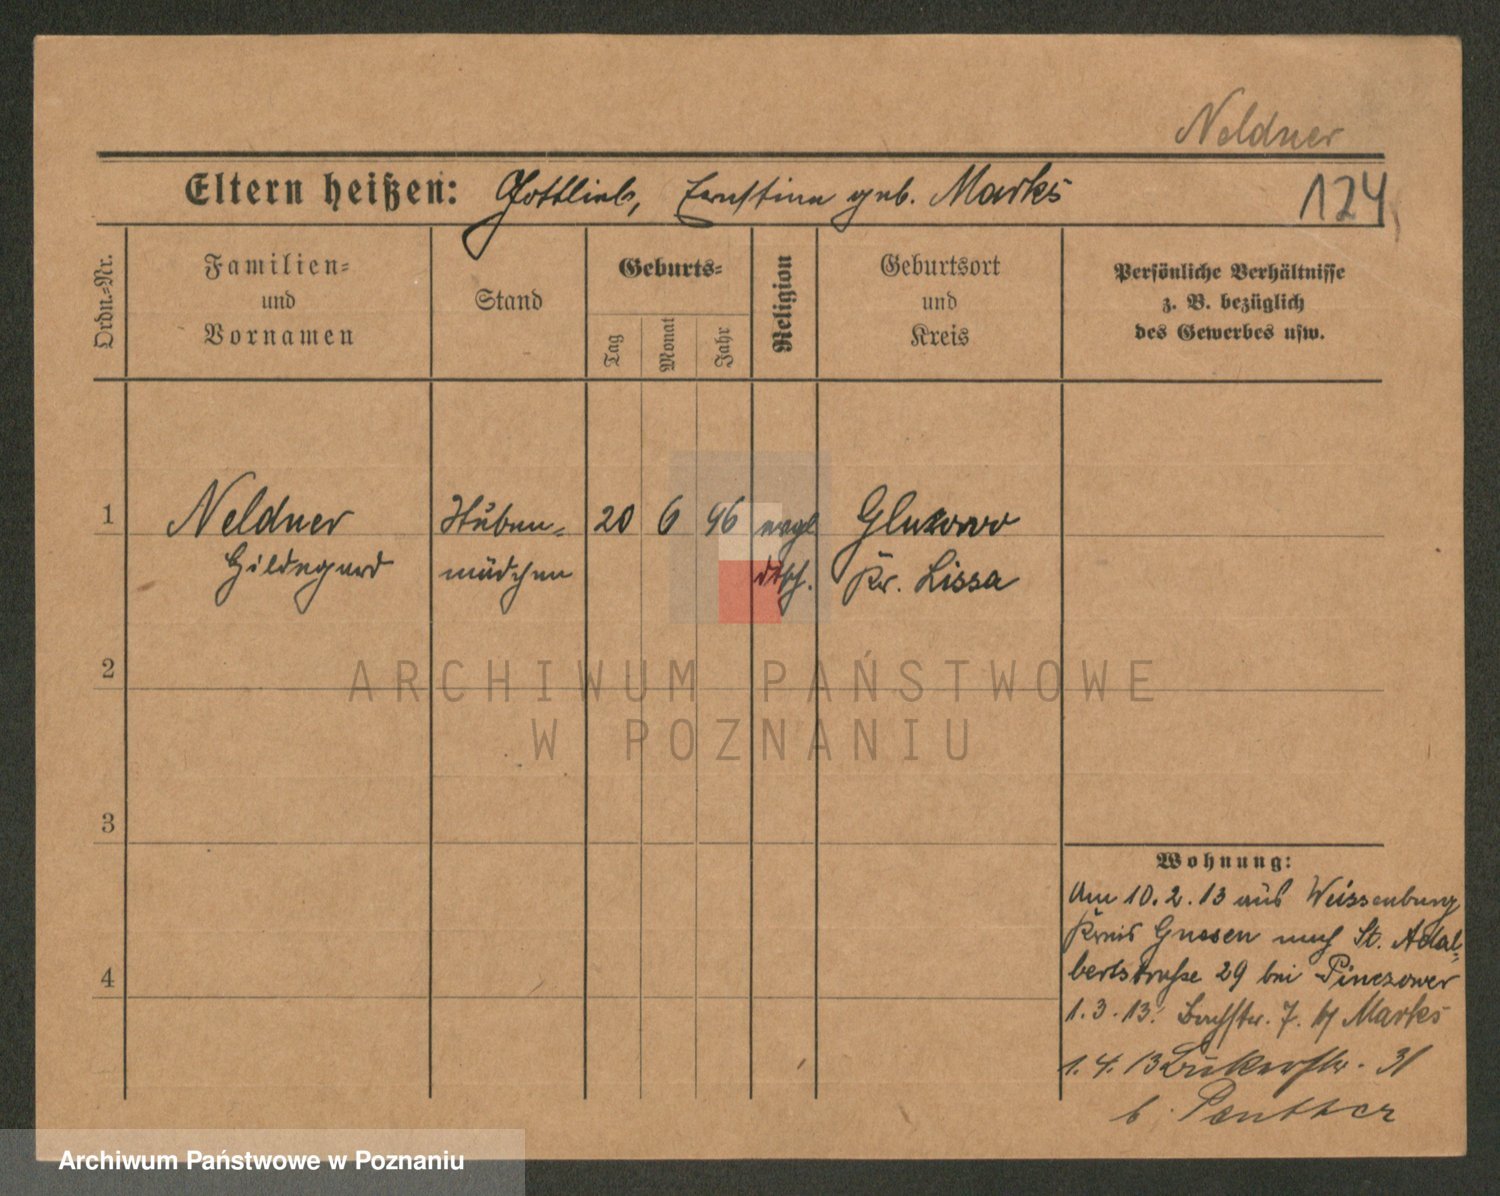 Neldner
Eltern heißen: Gottlieb, Ernstine geb. Marks
124
Ordn.-Nr.
Familien-
und
Vornamen
Stand
Geburts-
Tag
Monat
Jahr
Religion
Geburtsort
und
Kreis
Persönliche Verhältnisse
z. B. bezüglich
des Gewerbes usw.
1 Neldner Stuben- 20 6 96 evgl
Hildegard mädchen dtsch. Kr. Lissa
2
ARCHIWUM PAŃSTWOWE
W POZNANIU
3
Wohnung:
Am 10.2.13 aus Weissenburg
Kreis Gnesen nach St. Adal-
4 bertstraße 29 bei Pinczower
1.3.13. Bachstr. 7. Marks
1.4.13 31
b.
Archiwum Państwowe w Poznaniu